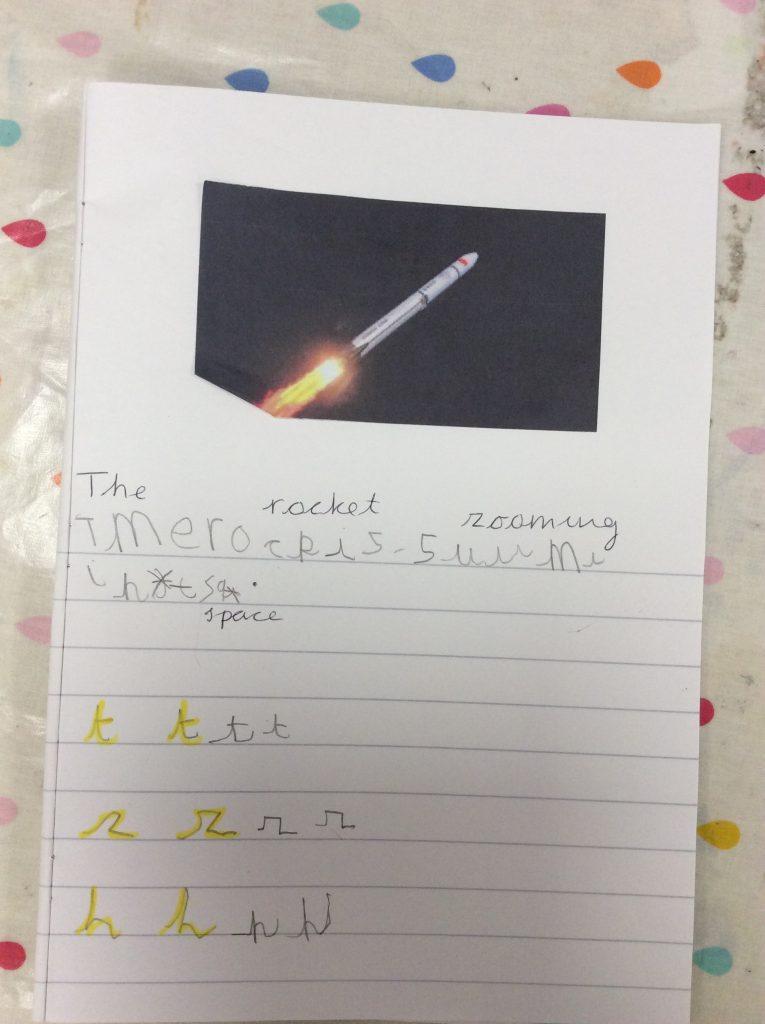 The rocket zooming
Tmero ckis. suumi
space
t t t t
r r r r
h h h h